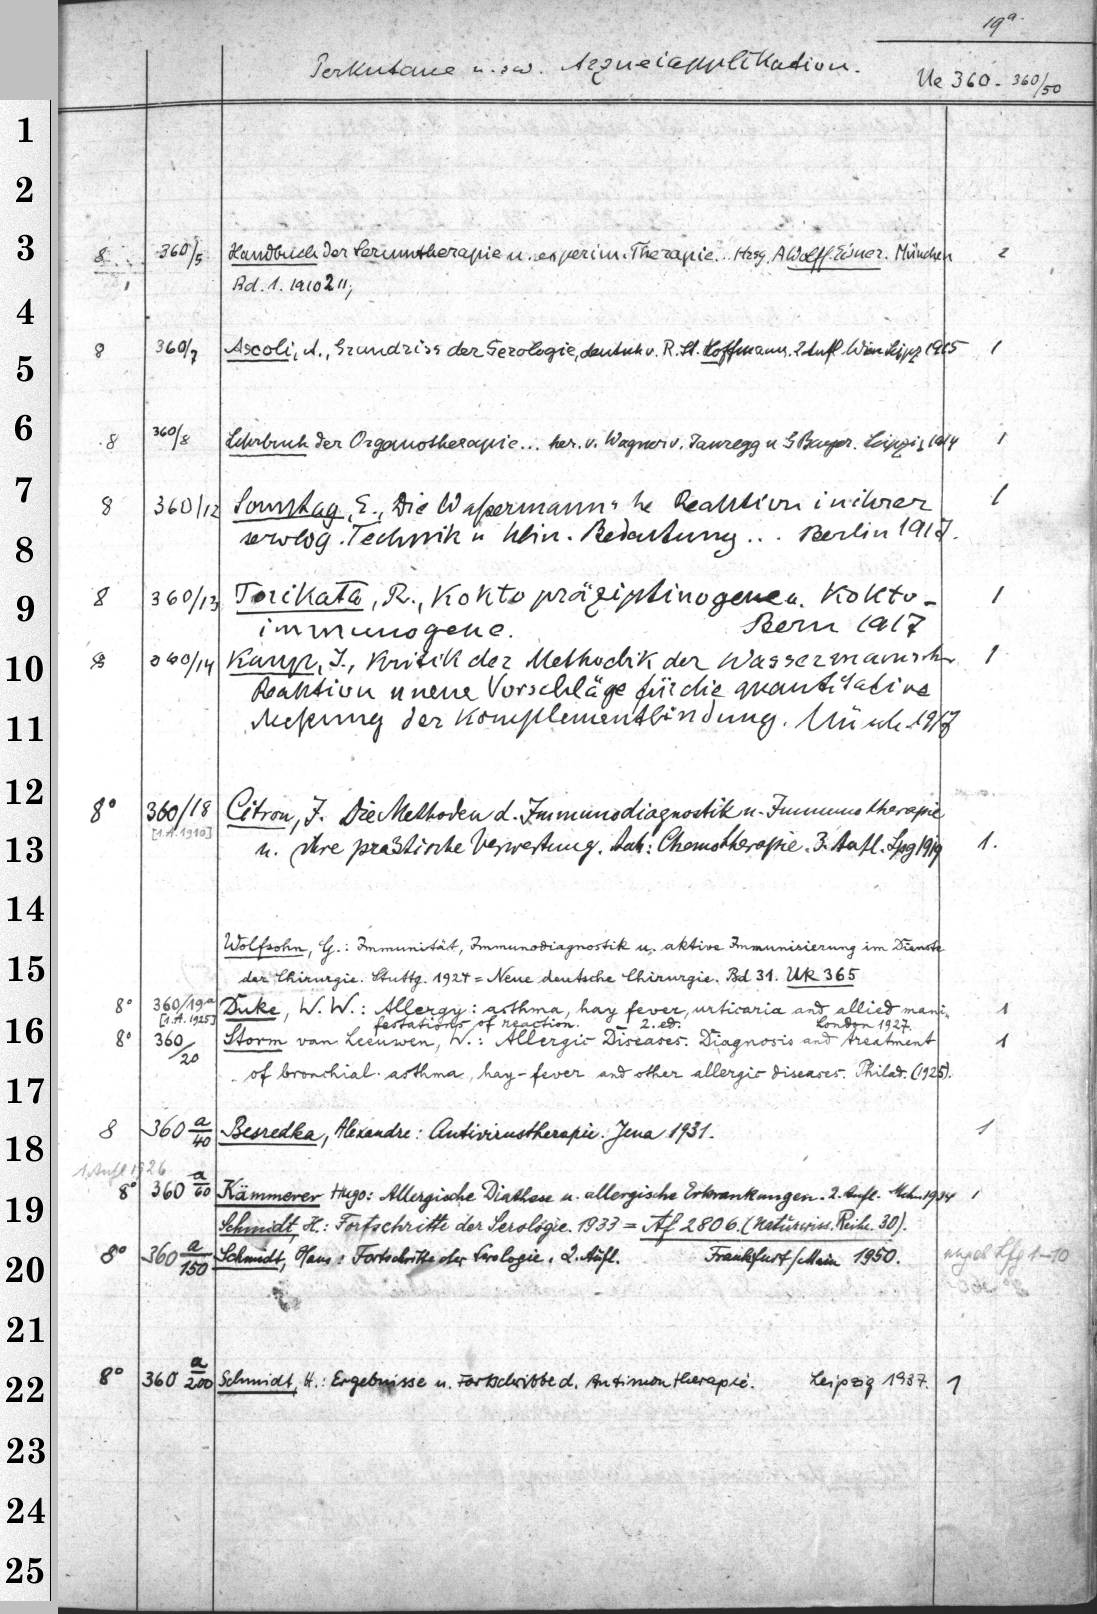 19a
Perkutane u.s.w. Arzneiapplikation.
Ue 360 - 360/50
1
2
3 8 360/5 Handbuch der Serumtherapie u. experim. Therapie... Hrsg. A Wolff-Eisner. München 2
Bd. 1. 1910 2 11,
4
8 360/7 Ascoli, A., Grundriss der Serologie, deutsch v. R. St. Hoffmann. 2 Aufl. Wien Leipz 1915 1
5
6 8 360/8 Lehrbuch der Organotherapie... her. v. Wagner v. Jauregg u G Bayer. Leipzig 1914 1
7 8 360/12 Sonntag, E., Die Waßermann'sche Reaktion in ihrer 1
8 serolog. Technik u klin. Bedeutung... Berlin 1917.
9 8 360/13 Torikata, R., Kokto präzipitinogene u. Kokto- 1
immunogene. Bern 1917
10 8 360/14 Kaup, J., Kritik der Methodik der Wassermannsch. 1
Reaktion u neue Vorschläge für die quantitative
11 Meßung der Komplementbindung. Münch. 1917
12 8° 360/18 Citron, J. Die Methoden d. Immunodiagnostik u. Immunotherapie
[1.A.1910]
13 u. ihre praktische Verwertung. Anh: Chemotherapie. 3. Aufl. Lpg 1919 1.
14
Wolfsohn, G.: Immunität, Immunodiagnostik u. aktive Immunisierung im Dienste
15 der Chirurgie. Stuttg. 1924 = Neue deutsche Chirurgie. Bd 31. Uk 365
8° 360/19a Duke, W. W.: Allergy: asthma, hay fever, urticaria and allied mani- 1
[1.A.1925] festations of reaction. 2. ed. London 1927.
16 8° 360/20 Storm van Leeuwen, W.: Allergic Diseases. Diagnosis and treatment 1
17 of bronchial asthma, hay-fever and other allergic diseases. Philad. (1925).
18 8 360 a/40 Besredka, Alexandre: Antivirustherapie. Jena 1931. 1
1. Aufl 1926
19 8° 360 a/60 Kämmerer Hugo: Allergische Diathese u. allergische Erkrankungen. 2. Aufl. Mch. 1934 1
Schmidt, H.: Fortschritte der Serologie. 1933 = Af 2806. (Naturwiss. Reihe. 30).
20 8° 360 a/150 Schmidt, Hans: Fortschritte der Serologie. 2. Aufl. Frankfurt/Main 1950. Lfg 1-10
21
22 8° 360 a/200 Schmidt, H.: Ergebnisse u. Fortschritte d. Antimontherapie. Leipzig 1937. 1
23
24
25